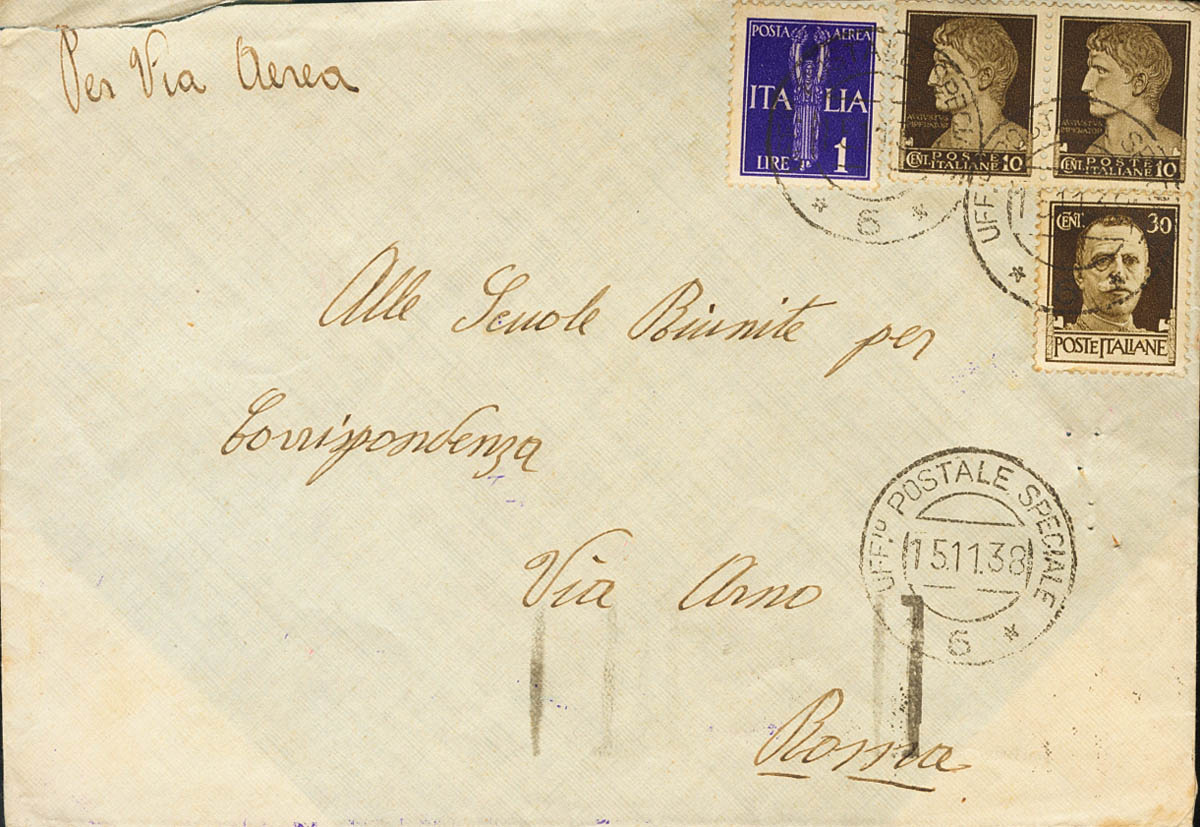 Per Via Aerea
POSTA AEREA
ITALIA
LIRE 1
AVGVSTVS
IMPERATOR
CENT. POSTE ITALIANE 10
AVGVSTVS
IMPERATOR
CENT. POSTE ITALIANE 10
6
UFF
15.11.38
CENT. 30
POSTE ITALIANE
Alle Scuole Riunite per
Corrispondenza
UFF1º POSTALE SPECIALE
15.11.38
6
Via Arno
Roma